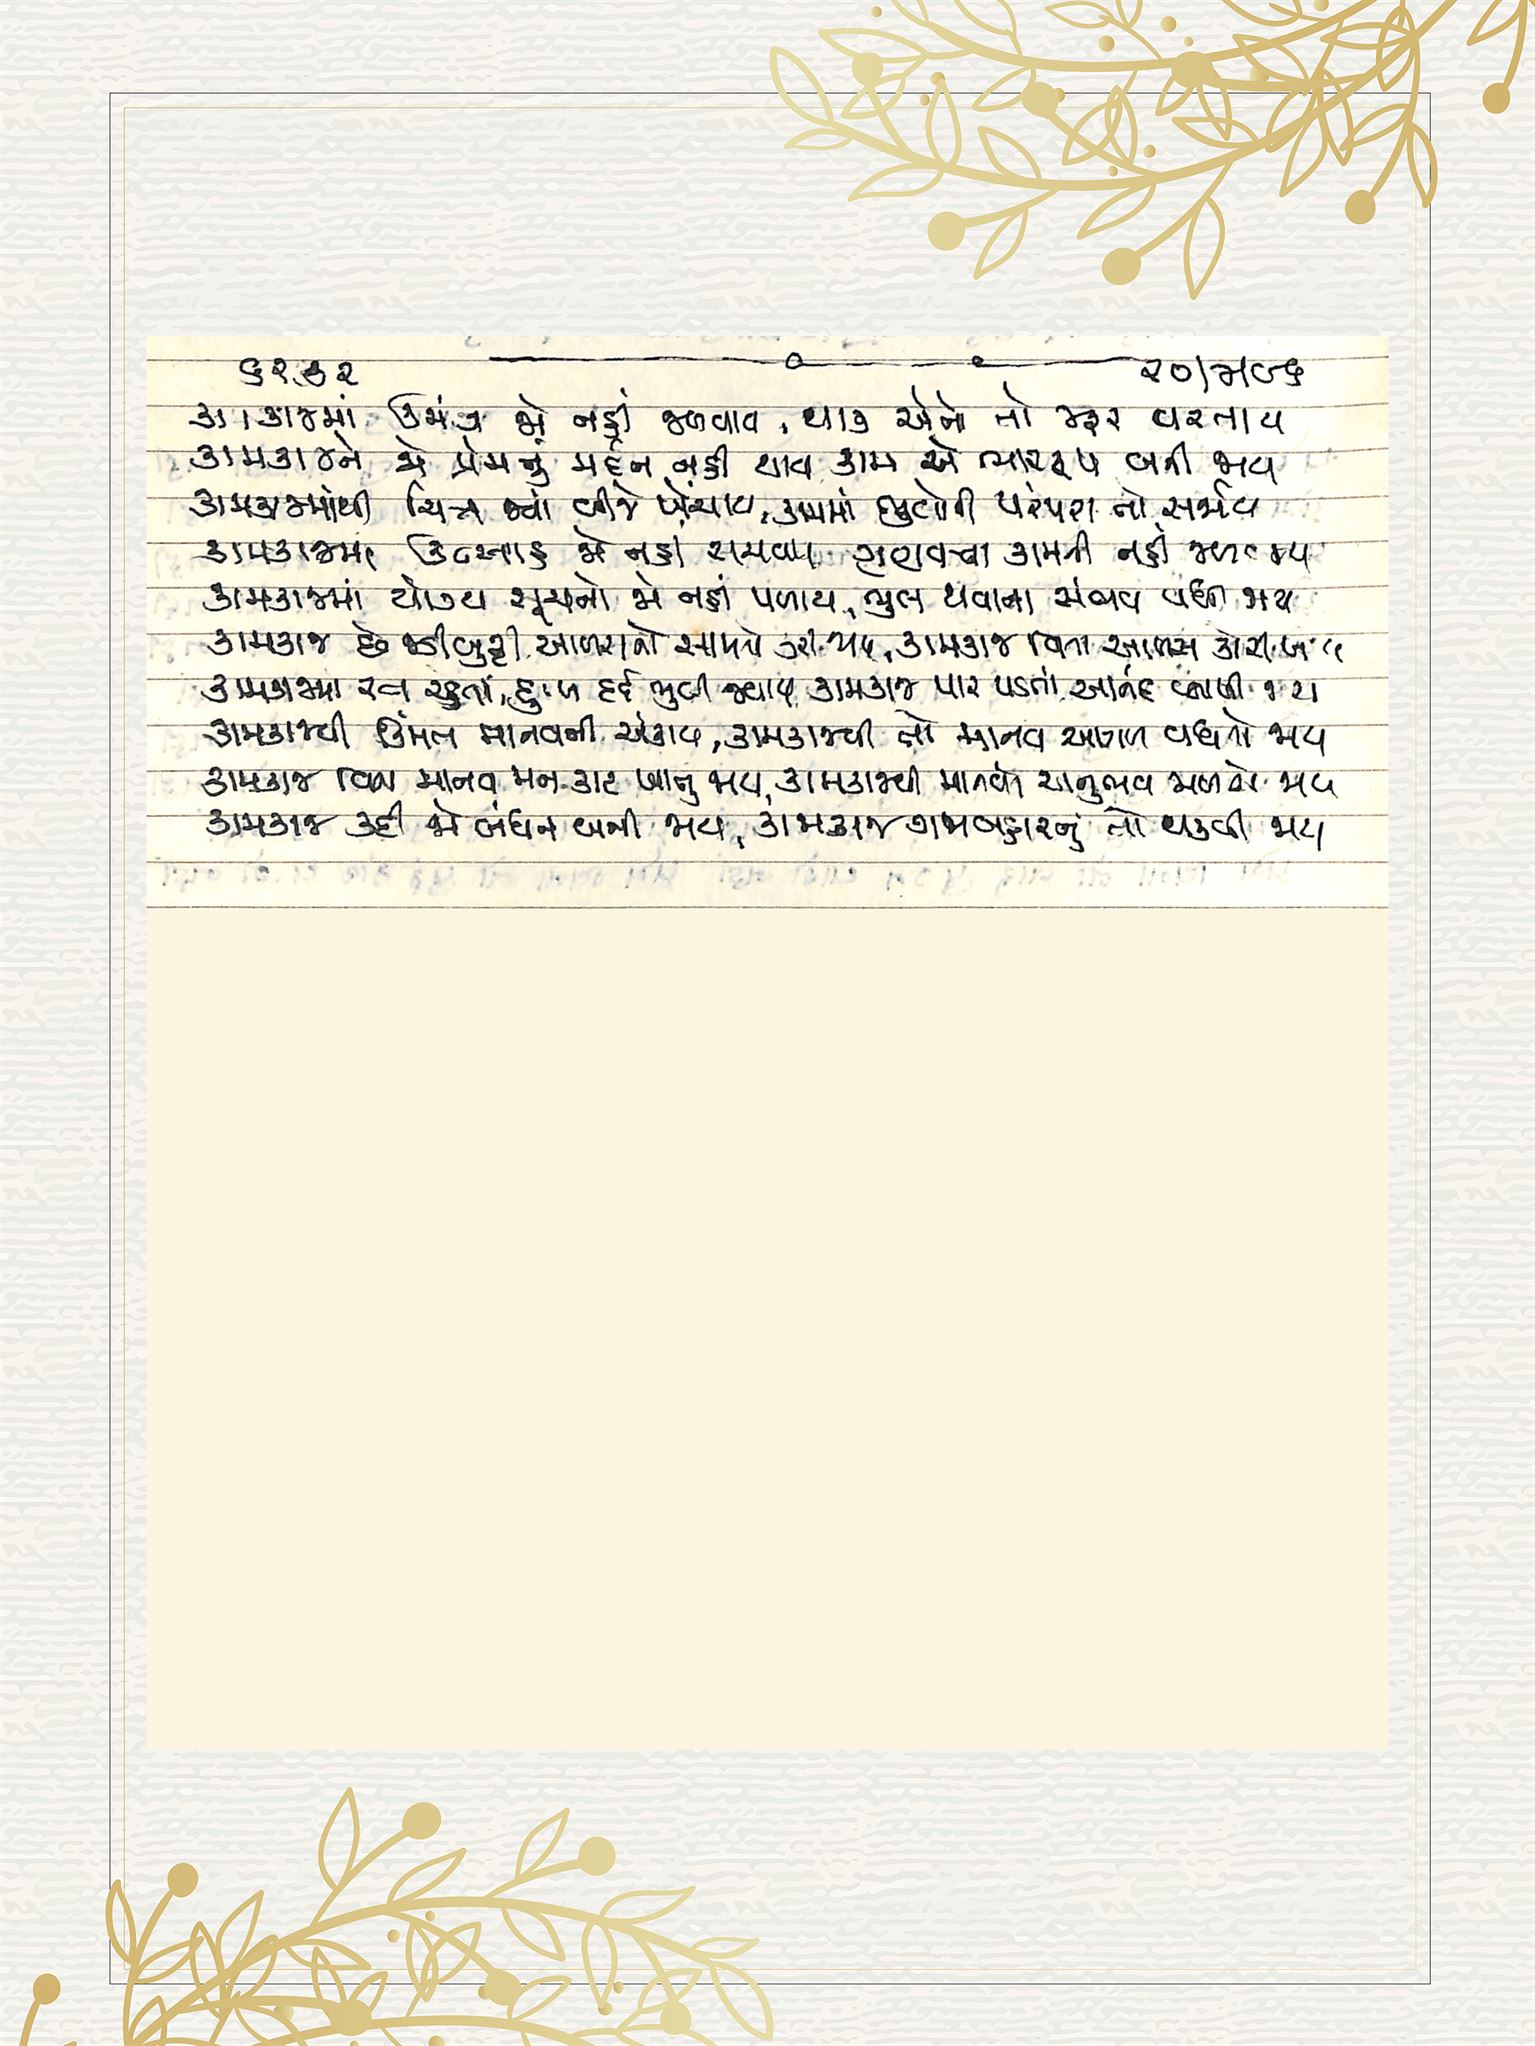 કામકાજમાં ઉમંગ જો નહીં જળવાય, થાક એનો તો જરૂર વરતાય
કામકાજને જો પ્રેમનું મર્દન નહીં થાય કામ એ ભારરૂપ બની જાય
કામકાજમાંથી ચિત્ત જ્યાં બીજે ખેંચાય, કામમાં ભુલોની પરંપરા તો સર્જાય
કામકાજમાં ઉત્સાહ જો નહીં સચવાય ગુણવત્તા કામની નહીં જળવાય
કામકાજમાં યોગ્ય સૂચનો જો નહીં પળાય, ભુલ થવાના સંભવ વધી જાય
કામકાજ છે જડીબુટ્ટી આળસનો સામનો કરી જાય, કામકાજ વિના આળસ કોરી ખાય
કામકાજમાં રત રહેતાં, દુઃખ દર્દ ભુલી જવાય કામકાજ પાર પડતાં આનંદ વ્યાપી જાય
કામકાજથી કિંમત માનવની અંકાય, કામકાજથી તો માનવ આગળ વધતો જાય
કામકાજ વિના માનવ મન કાટ ખાતું જાય, કામકાજથી માનવને અનુભવ મળતો જાય
કામકાજ કદી જો બંધન બની જાય, કામકાજ ગજાબહારનું તો થકવી જાય